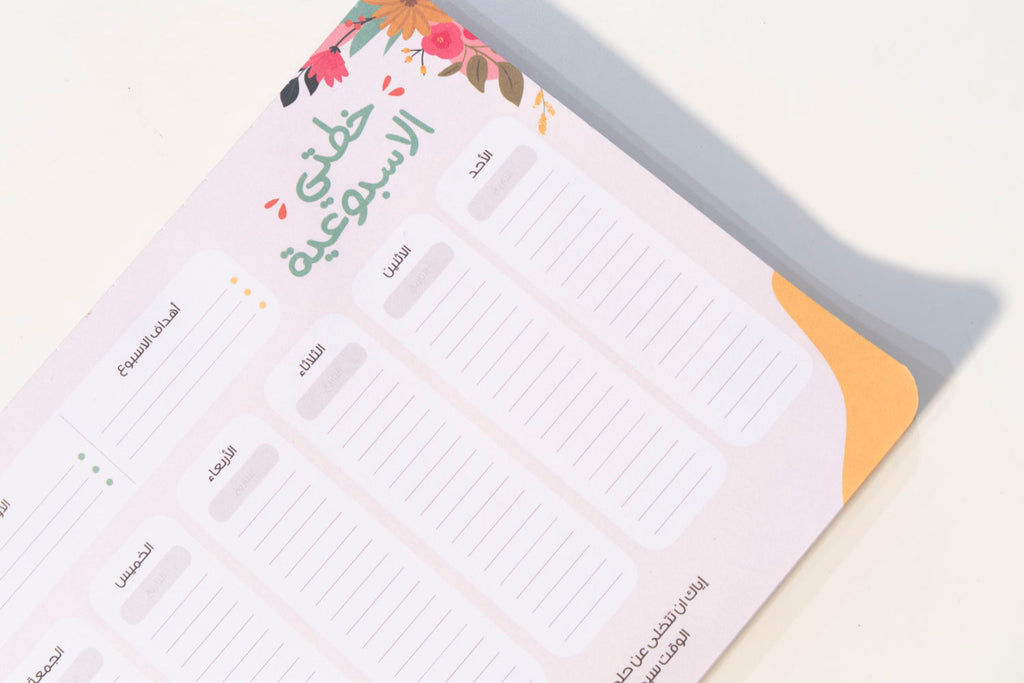 خطتي
الاسبوعية
الأحد
الاثنين
الثلاثاء
الأربعاء
الخميس
الجمعة
أهداف الاسبوع
إياك ان تتخلى عن
الوقت